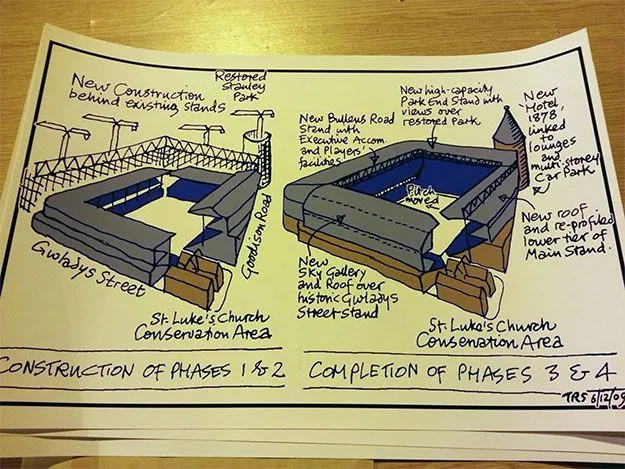 New Construction
behind existing stands
Restored
Stanley
Park
Gwladys Street
Goodison Road
St. Luke's Church
Conservation Area
CONSTRUCTION OF PHASES 1 & 2
New Bullens Road
Stand with
Executive Accom.
and Players'
facilities
New high-capacity
Park End Stand with
views over
restored Park
New
Hotel,
1878,
linked
to
lounges
and
multi-storey
Car Park
Pitch
moved
New roof
and re-profiled
lower tier of
Main Stand.
New
Sky Gallery
and Roof over
historic Gwladys
Street stand
St. Luke's Church
Conservation Area
COMPLETION OF PHASES 3 & 4
TRS 6/12/09